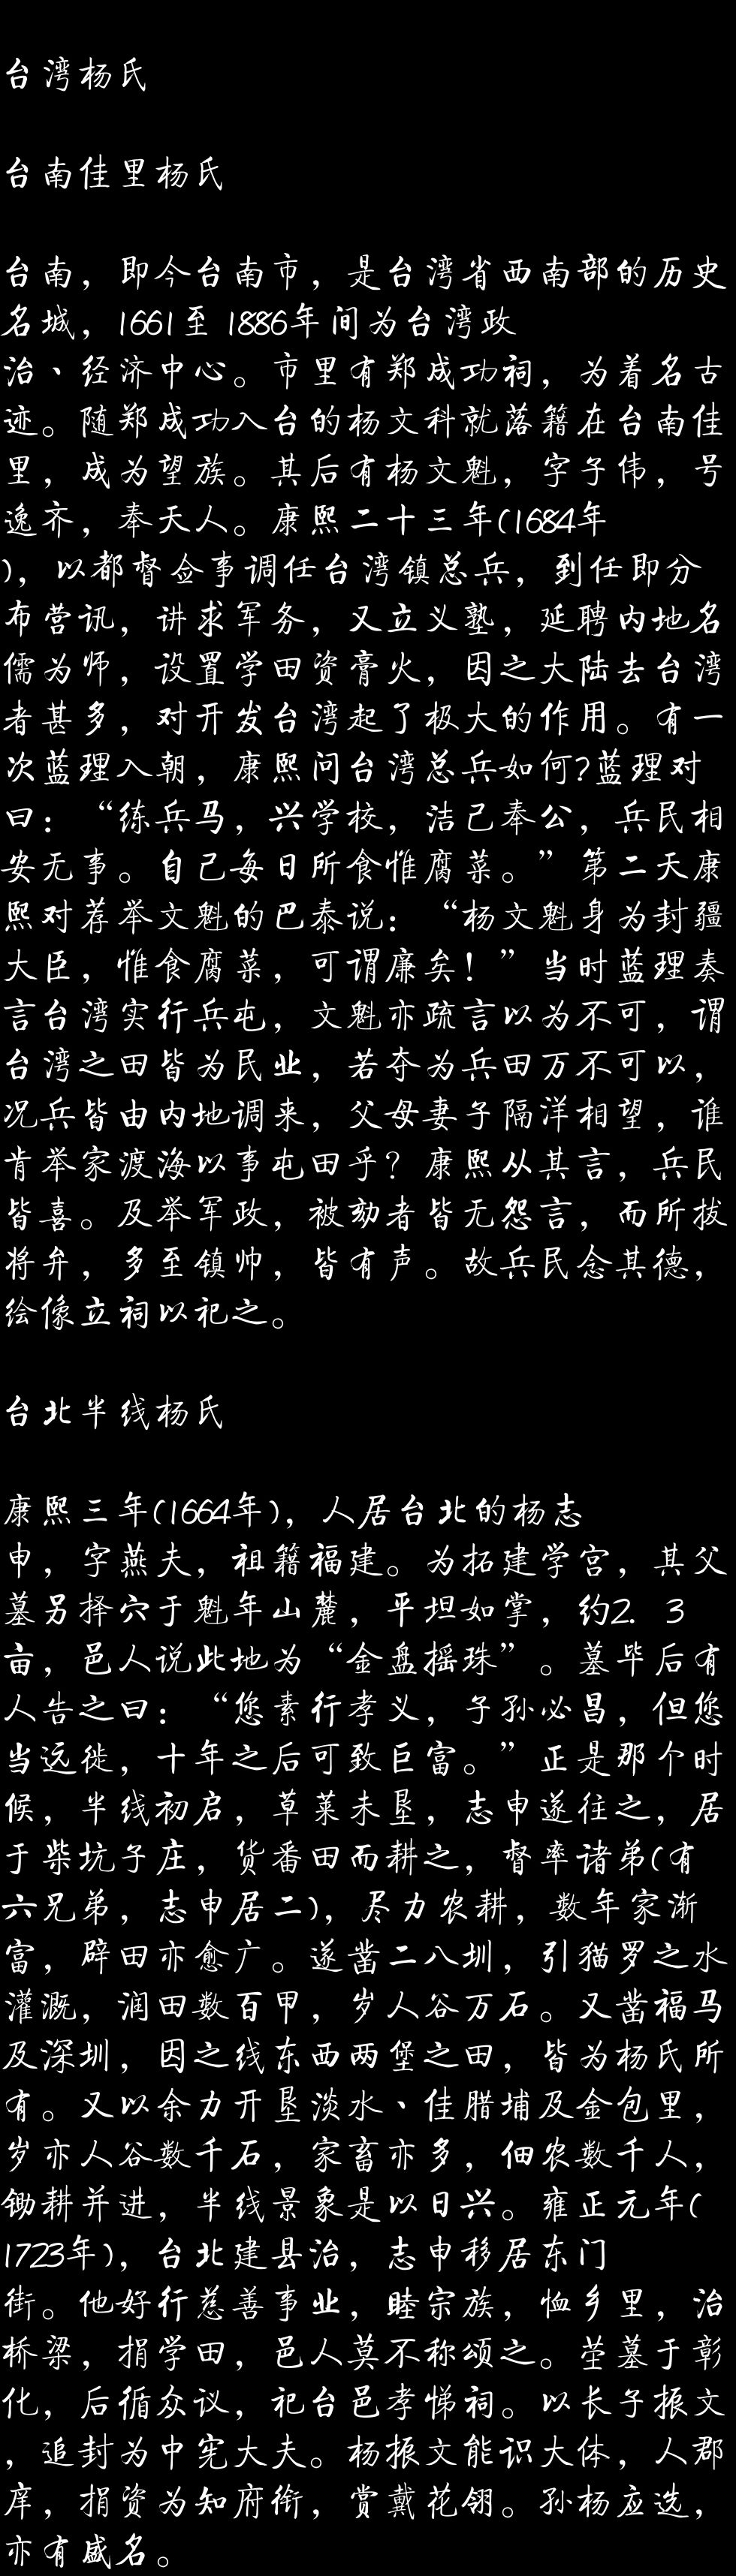 台湾杨氏
台南佳里杨氏
台南，即今台南市，是台湾省西南部的历史
名城，1661至 1886年间为台湾政
治、经济中心。市里有郑成功祠，为着名古
迹。随郑成功入台的杨文科就落籍在台南佳
里，成为望族。其后有杨文魁，字子伟，号
逸齐，奉天人。康熙二十三年(1684年
)，以都督佥事调任台湾镇总兵，到任即分
布营讯，讲求军务，又立义塾，延聘内地名
儒为师，设置学田资膏火，因之大陆去台湾
者甚多，对开发台湾起了极大的作用。有一
次蓝理入朝，康熙问台湾总兵如何?蓝理对
曰：“练兵马，兴学校，洁己奉公，兵民相
安无事。自己每日所食惟腐菜。”第二天康
熙对荐举文魁的巴泰说：“杨文魁身为封疆
大臣，惟食腐菜，可谓廉矣！”当时蓝理奏
言台湾实行兵屯，文魁亦疏言以为不可，谓
台湾之田皆为民业，若夺为兵田万不可以，
况兵皆由内地调来，父母妻子隔洋相望，谁
肯举家渡海以事屯田乎？康熙从其言，兵民
皆喜。及举军政，被劾者皆无怨言，而所拔
将弁，多至镇帅，皆有声。故兵民念其德，
绘像立祠以祀之。
台北半线杨氏
康熙三年(1664年)，人居台北的杨志
申，字燕夫，祖籍福建。为拓建学宫，其父
墓另择穴于魁年山麓，平坦如掌，约2．3
亩，邑人说此地为“金盘摇珠”。墓毕后有
人告之曰：“您素行孝义，子孙必昌，但您
当远徙，十年之后可致巨富。”正是那个时
候，半线初启，草莱未垦，志申遂往之，居
于柴坑子庄，货番田而耕之，督率诸弟(有
六兄弟，志申居二)，尽力农耕，数年家渐
富，辟田亦愈广。遂凿二八圳，引猫罗之水
灌溉，润田数百甲，岁人谷万石。又凿福马
及深圳，因之线东西两堡之田，皆为杨氏所
有。又以余力开垦淡水、佳腊埔及金包里，
岁亦人谷数千石，家畜亦多，佃农数千人，
锄耕并进，半线景象是以日兴。雍正元年(
1723年)，台北建县治，志申移居东门
街。他好行慈善事业，睦宗族，恤乡里，治
桥梁，捐学田，邑人莫不称颂之。茔墓于彰
化，后循众议，祀台邑孝悌祠。以长子振文
，追封为中宪大夫。杨振文能识大体，人郡
庠，捐资为知府衔，赏戴花翎。孙杨应选，
亦有盛名。